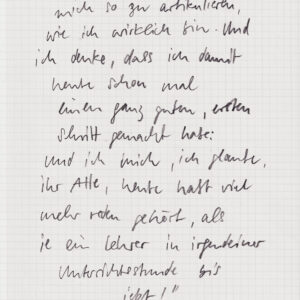 mich so zu artikulieren,
wie ich wirklich bin. Und
ich denke, dass ich damit
heute schon mal
einen ganz guten, ersten
Schritt gemacht habe:
Und ich mich, ich glaube,
ihr Alle, heute hatt viel
mehr reden gehört, als
je ein Lehrer in irgendeiner
Unterrichtsstunde bis
jetzt!"